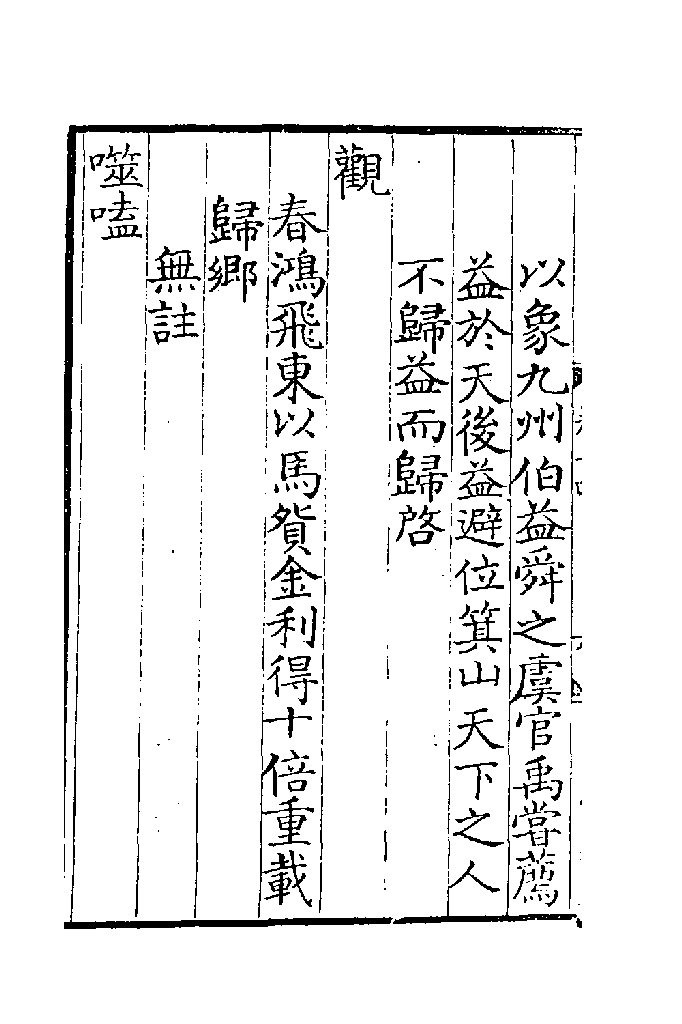 以象九州伯益舜之虞官禹嘗薦
益於天後益避位箕山天下之人
不歸益而歸啓
觀
春鴻飛東以馬貿金利得十倍重載
歸鄉
無註
噬嗑